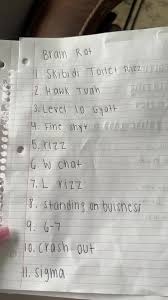 Brain Rot
1. Skibidi Toilet Rizz
2 Hawk Tuah
3. Level 10 Gyatt
4. Fine shyt
5. rizz
6 W chat
7. L rizz
8. standing on buisness
9. 6-7
10. crash out
11. sigma